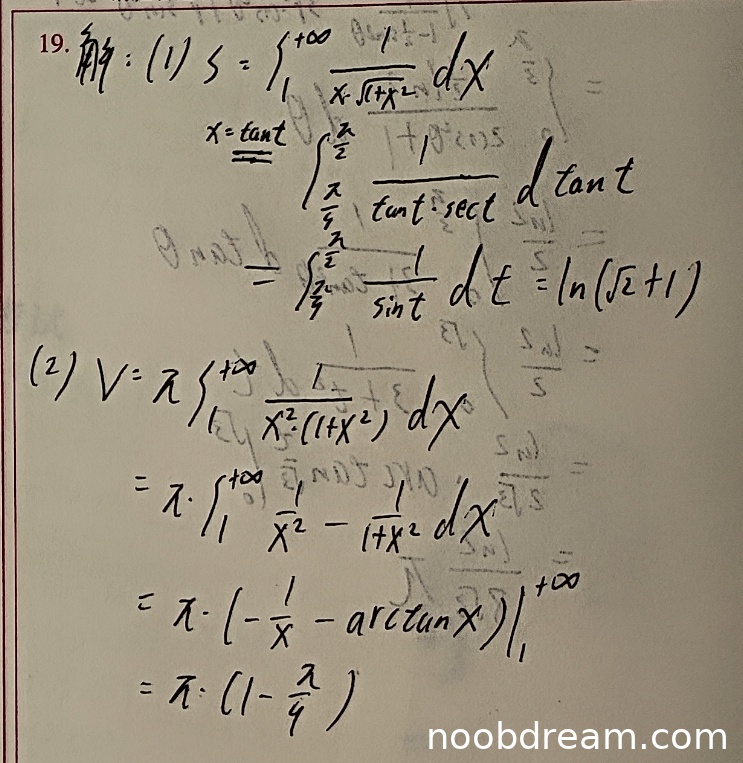 19. 解: (1) S = ∫₁^{+∞} 1/(x·√(1+x²)) dx
x=tant ∫_{π/4}^{π/2} 1/(tant·sect) d tant
= ∫_{π/4}^{π/2} 1/sint dt = ln(√2+1)
(2) V = π ∫₁^{+∞} 1/(x²·(1+x²)) dx
= π· ∫₁^{+∞} 1/x² − 1/(1+x²) dx
= π·(−1/x − arctanx)|₁^{+∞}
= π·(1−π/4)
noobdream.com